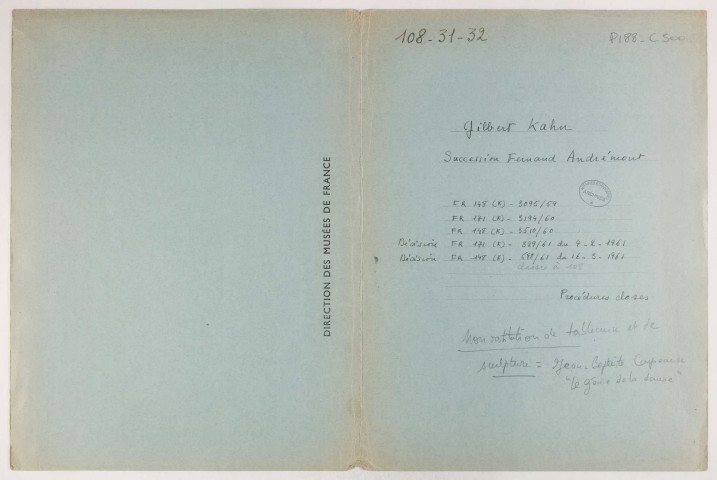 DIRECTION DES MUSÉES DE FRANCE
108-31-32
P188-C500
Gilbert Kahn
Succession Fernand Andrémont
FR 148 (K) - 3095/59
FR 171 (K) - 3194/60
FR 148 (K) - 3510/60
Décision FR 171 (K) - 329/61 du 9-2-1961
Décision FR 148 (K) - 698/61 du 16-3-1961
Procédures closes
Non restitution de tableaux et de
sculpture = Jean-Baptiste Carpeaux
"Le génie de la danse"